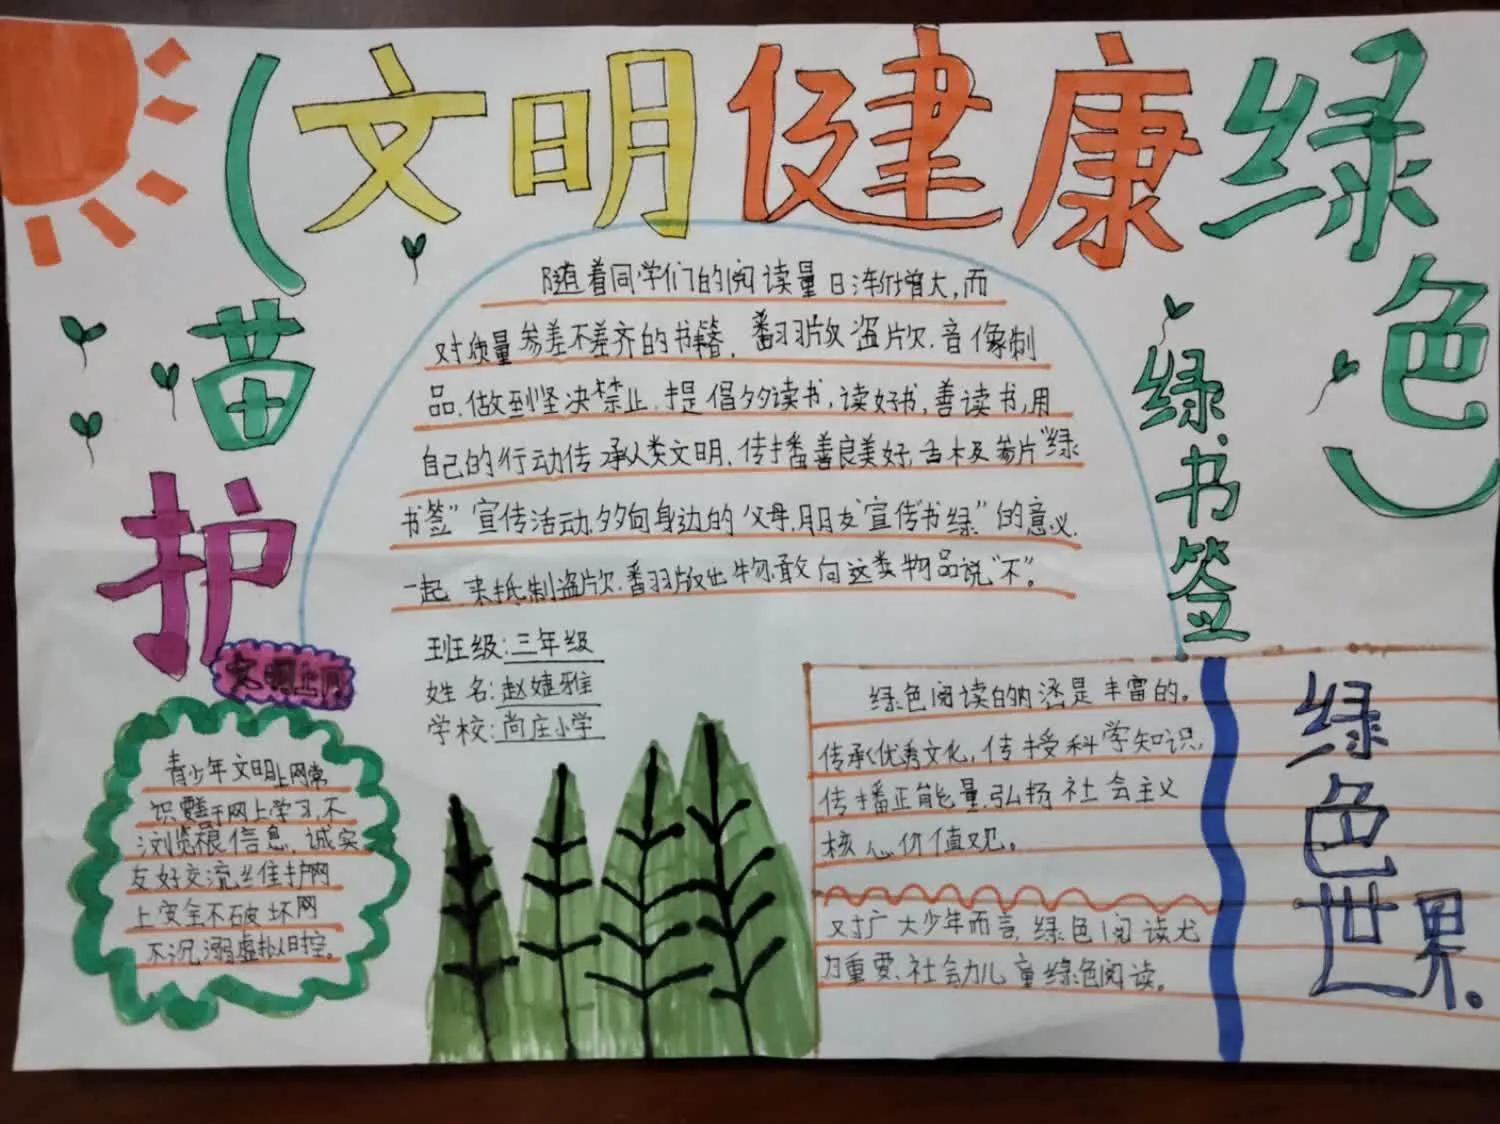 (文明健康绿色)
护苗
绿书签
随着同学们的阅读量日渐增大,而
对质量参差不差齐的书籍、翻版盗版、音像制
品,做到坚决禁止,提倡多读书,读好书,善读书,用
自己的行动传承人类文明,传播善良美好,
书签"宣传活动,多向身边的父母,朋友"宣传书绿"的意义,
一起来抵制盗版、翻版出物,敢向这类物品说"不"。
班级:三年级
姓名:赵婕雅
学校:尚庄小学
文明上网
青少年文明上网常
识要善于网上学习,不
浏览 信息,诚实
友好交流维护网
上安全不破坏网
不沉溺虚拟时空。
绿色阅读的内涵是丰富的。
传承优秀文化,传授科学知识,
传播正能量,弘扬社会主义
核心价值观。
对广大少年而言,绿色阅读尤
为重要、社会 儿童绿色阅读。
绿色世界。